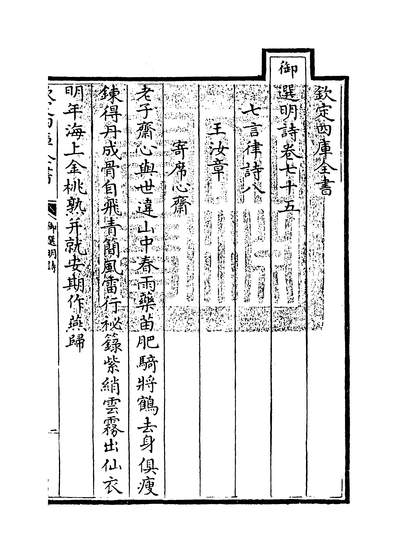 欽定四庫全書
御選明詩卷七十五
七言律詩八
王汝章
寄席心齋
老子齋心與世違山中春雨藥苗肥騎將鶴去身俱瘦
鍊得丹成骨自飛青簡風雷行祕籙紫綃雲霧出仙衣
明年海上金桃熟并就安期作燕歸
御選明詩